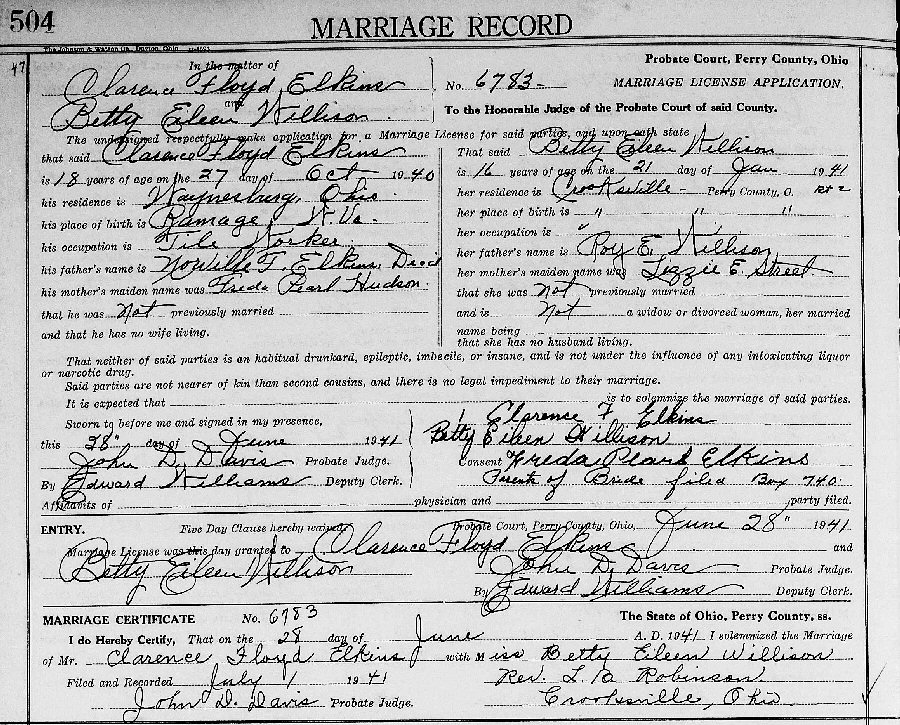 504
MARRIAGE RECORD
47
In the matter of
Clarence Floyd Elkins
and
Betty Eileen Willison
Probate Court, Perry County, Ohio
No. 6783- MARRIAGE LICENSE APPLICATION.
To the Honorable Judge of the Probate Court of said County.
The undersigned respectfully make application for a Marriage License for said parties, and upon oath state
that said Clarence Floyd Elkins
is 18 years of age on the 27 day of Oct 1940
his residence is Waynesburg, Ohio
his place of birth is Ramage, W. Va.
his occupation is Tile Worker.
his father's name is Nowille T. Elkins, Dec'd
his mother's maiden name was Freda Pearl Hudson.
that he was Not previously married
and that he has no wife living.
That said Betty Eileen Willison
is 16 years of age on the 21 day of Jan 1941
her residence is Crooksville- Perry County, O. Rt 2
her place of birth is " " "
her occupation is "
her father's name is Roy E. Willison
her mother's maiden name was Lizzie E. Street
that she was Not previously married
and is Not a widow or divorced woman, her married
name being
that she has no husband living.
That neither of said parties is an habitual drunkard, epileptic, imbecile, or insane, and is not under the influence of any intoxicating liquor
or narcotic drug.
Said parties are not nearer of kin than second cousins, and there is no legal impediment to their marriage.
It is expected that is to solemnize the marriage of said parties.
Sworn to before me and signed in my presence,
this 28" day of June 1941
John D. Davis Probate Judge.
By Edward Williams Deputy Clerk.
Clarence F Elkins
Betty Eileen Willison
Consent Freda Pearl Elkins
Parents of Bride filed Box 740.
Affidavits of physician and party filed.
ENTRY. Five Day Clause hereby waived Probate Court, Perry County, Ohio, June 28" 1941
Marriage License was this day granted to Clarence Floyd Elkins and
Betty Eileen Willison John D. Davis Probate Judge.
By Edward Williams Deputy Clerk.
MARRIAGE CERTIFICATE No. 6783 The State of Ohio, Perry County, ss.
I do Hereby Certify, That on the 28 day of June A. D. 1941 I solemnized the Marriage
of Mr. Clarence Floyd Elkins with Miss Betty Eileen Willison
Filed and Recorded July 1 1941 Rev. L. Robinson
John D. Davis Probate Judge. Crooksville, Ohio